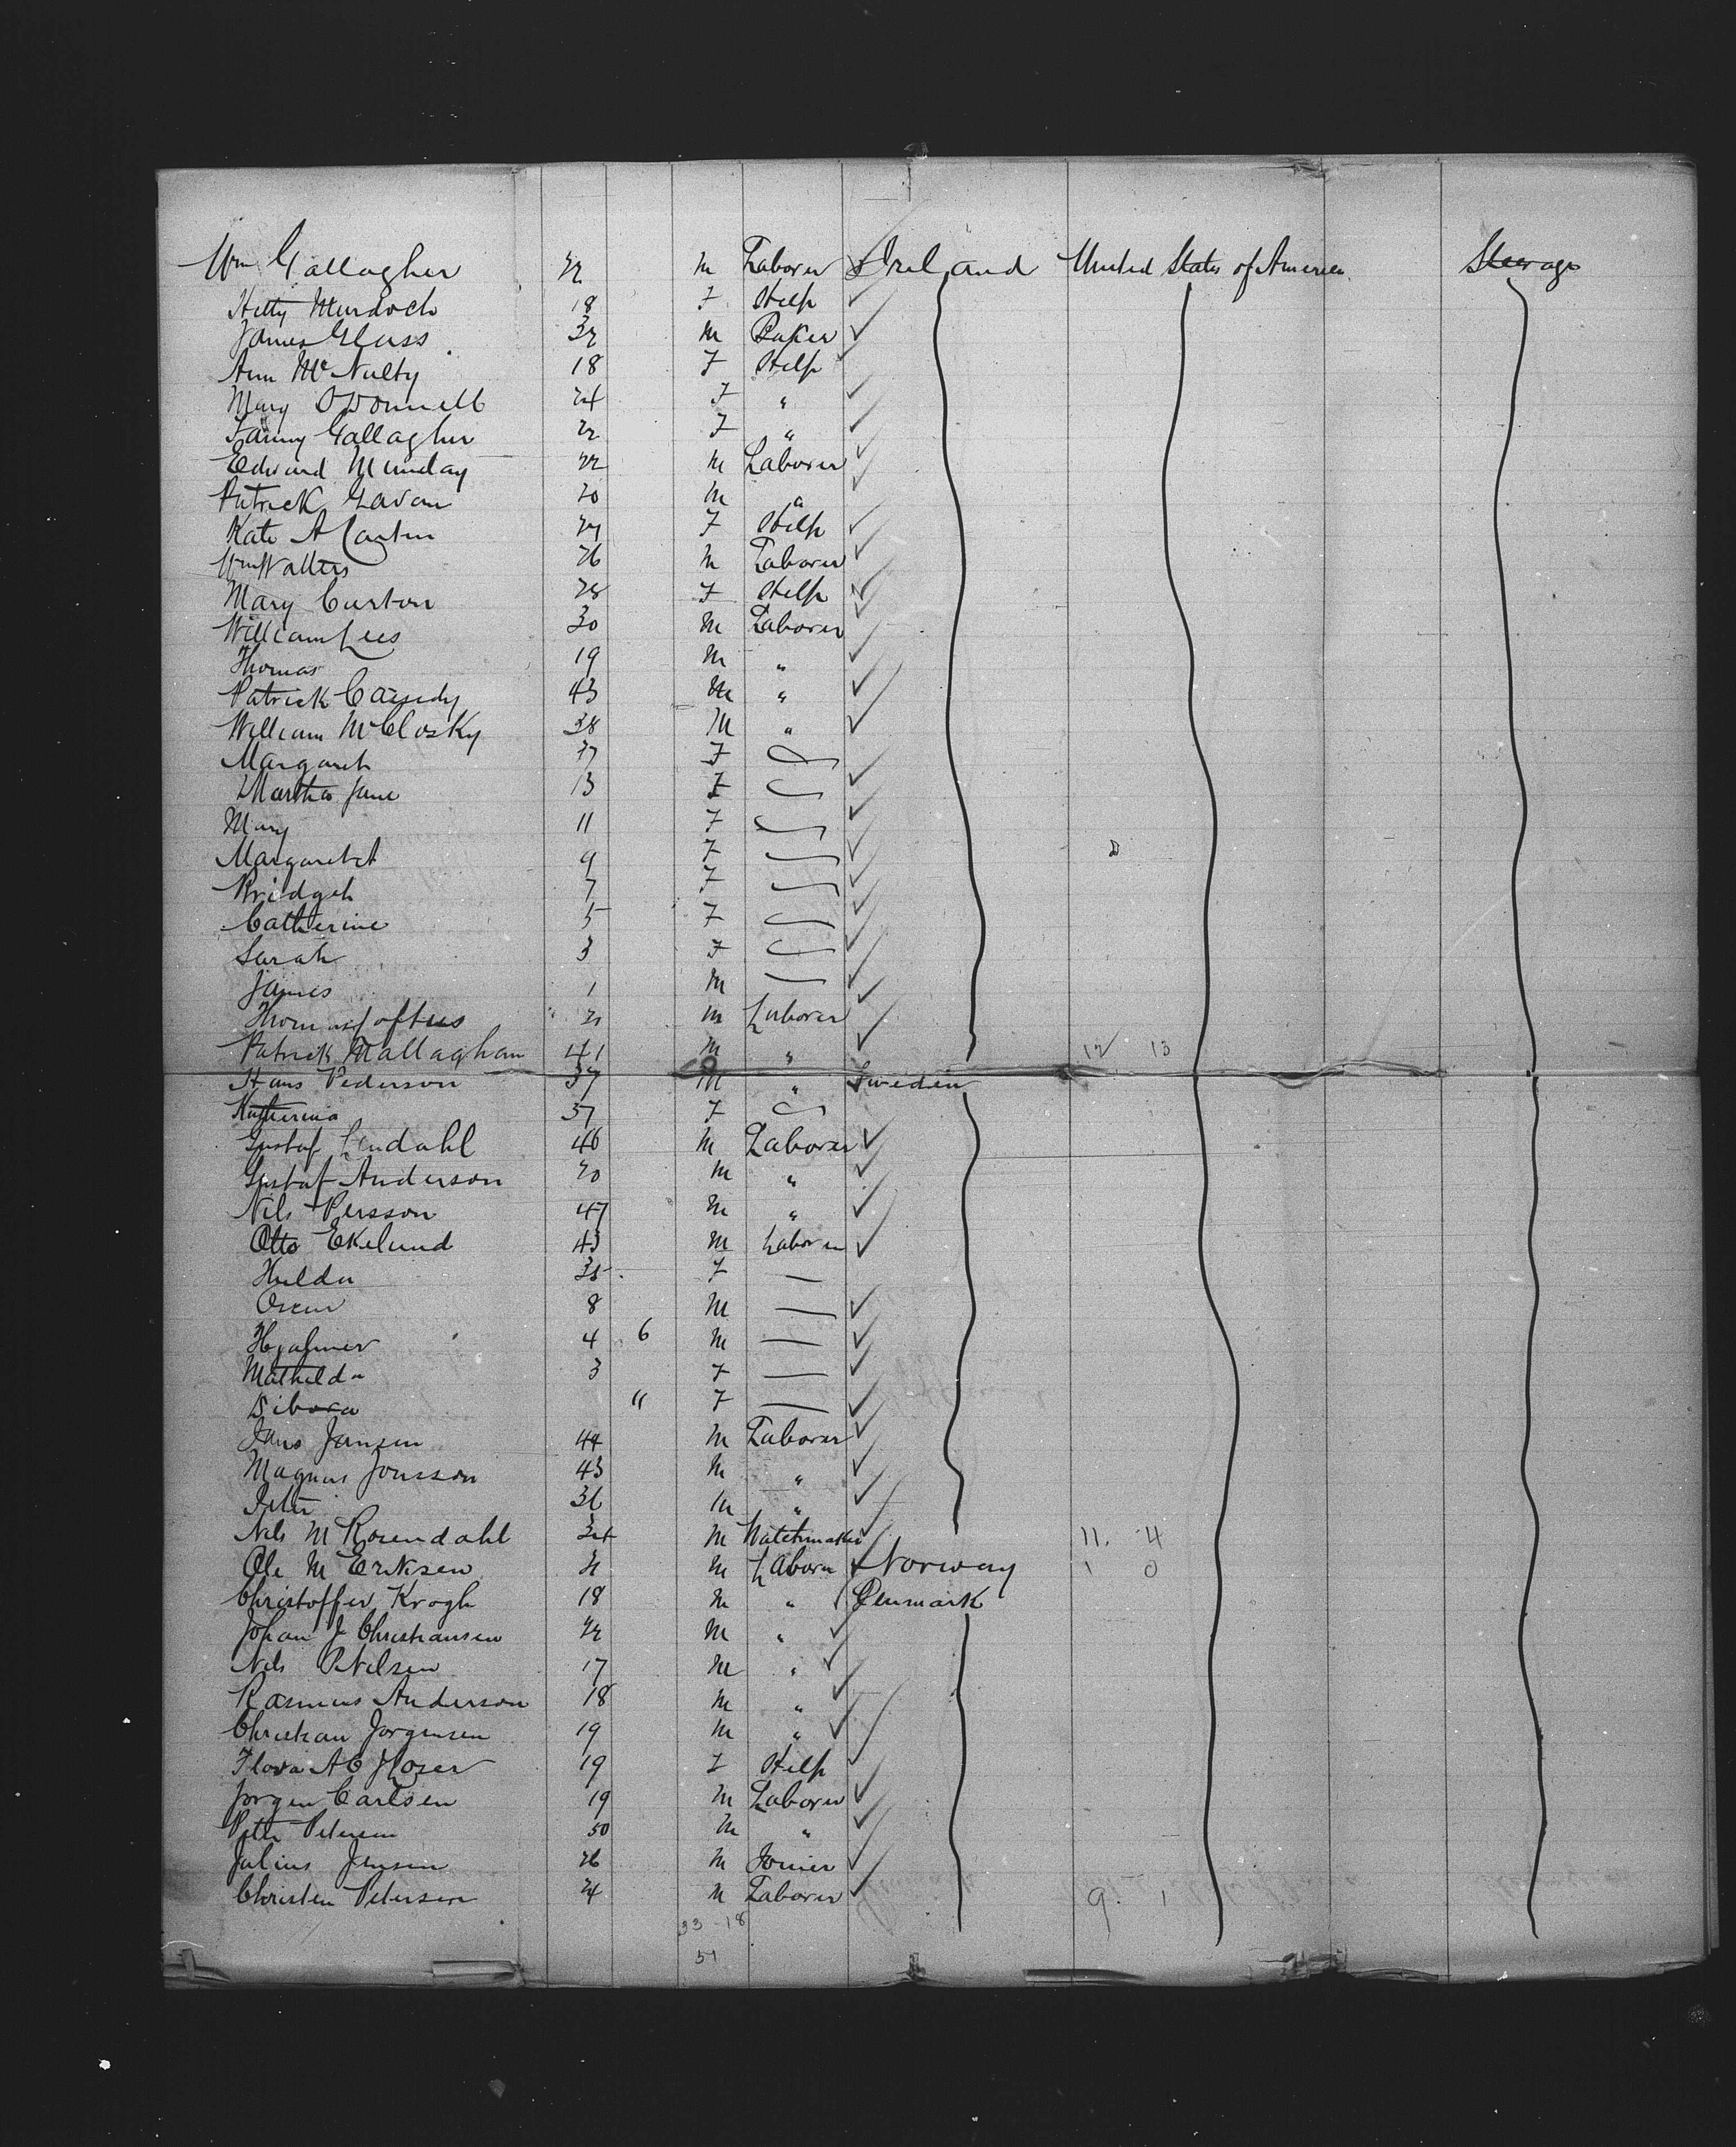 Wm Gallagher 22 M Laborer Ireland United States of America Steerage
Hetty Murdoch 18 F Help
James Glass 32 M Baker
Ann McNulty 18 F Help
Mary O'Donnell 24 F "
Fanny Gallagher 22 F "
Edward Munday 22 M Laborer
Patrick Gavan 20 M "
Kate A Carten F Help
Wm Walters 26 M Laborer
Mary Curton 28 F Help
William Lees 30 M Laborer
Thomas 19 M "
Patrick Cassidy 43 M "
William McClosky 38 M "
Margaret 37 F
Martha Jane 13 F
Mary 11 F
Margaret 9 F
Bridget 7 F
Catherine 5 F
Sarah 3 F
James 1 M
Thomas Loftus 21 M Laborer
Patrick Mallaghan 41 M " 12 13
Hans Pederson 37 M " Sweden
Katherina 37 F
Gustaf Lindahl 46 M Laborer
Gustaf Anderson 20 M "
Nils Persson 47 M "
Otto Ekelund 43 M Laborer
Hulda 35 F —
Oscar 8 M —
Hjalmer 4 6 M —
Mathilda 3 F —
Debora " F —
Jans Jansen 44 M Laborer
Magnus Jonsson 43 M "
Peter 36 M "
Nils M Rosendahl 34 M Watchmaker 11. 4
Ole M Eriksen 21 M Laborer Norway 1 0
Christoffer Krogh 18 M " Denmark
Johan J Christiansen 22 M "
Nils P Nilsen 17 M "
Rasmus Anderson 18 M "
Christian Jorgensen 19 M "
Flora A C 19 F Help
Jorgen Carlsen 19 M Laborer
Peter Petersen 50 M "
Julius Jensen 26 M Joiner
Christen Petersen 24 M Laborer 9. 1
33 - 18
51